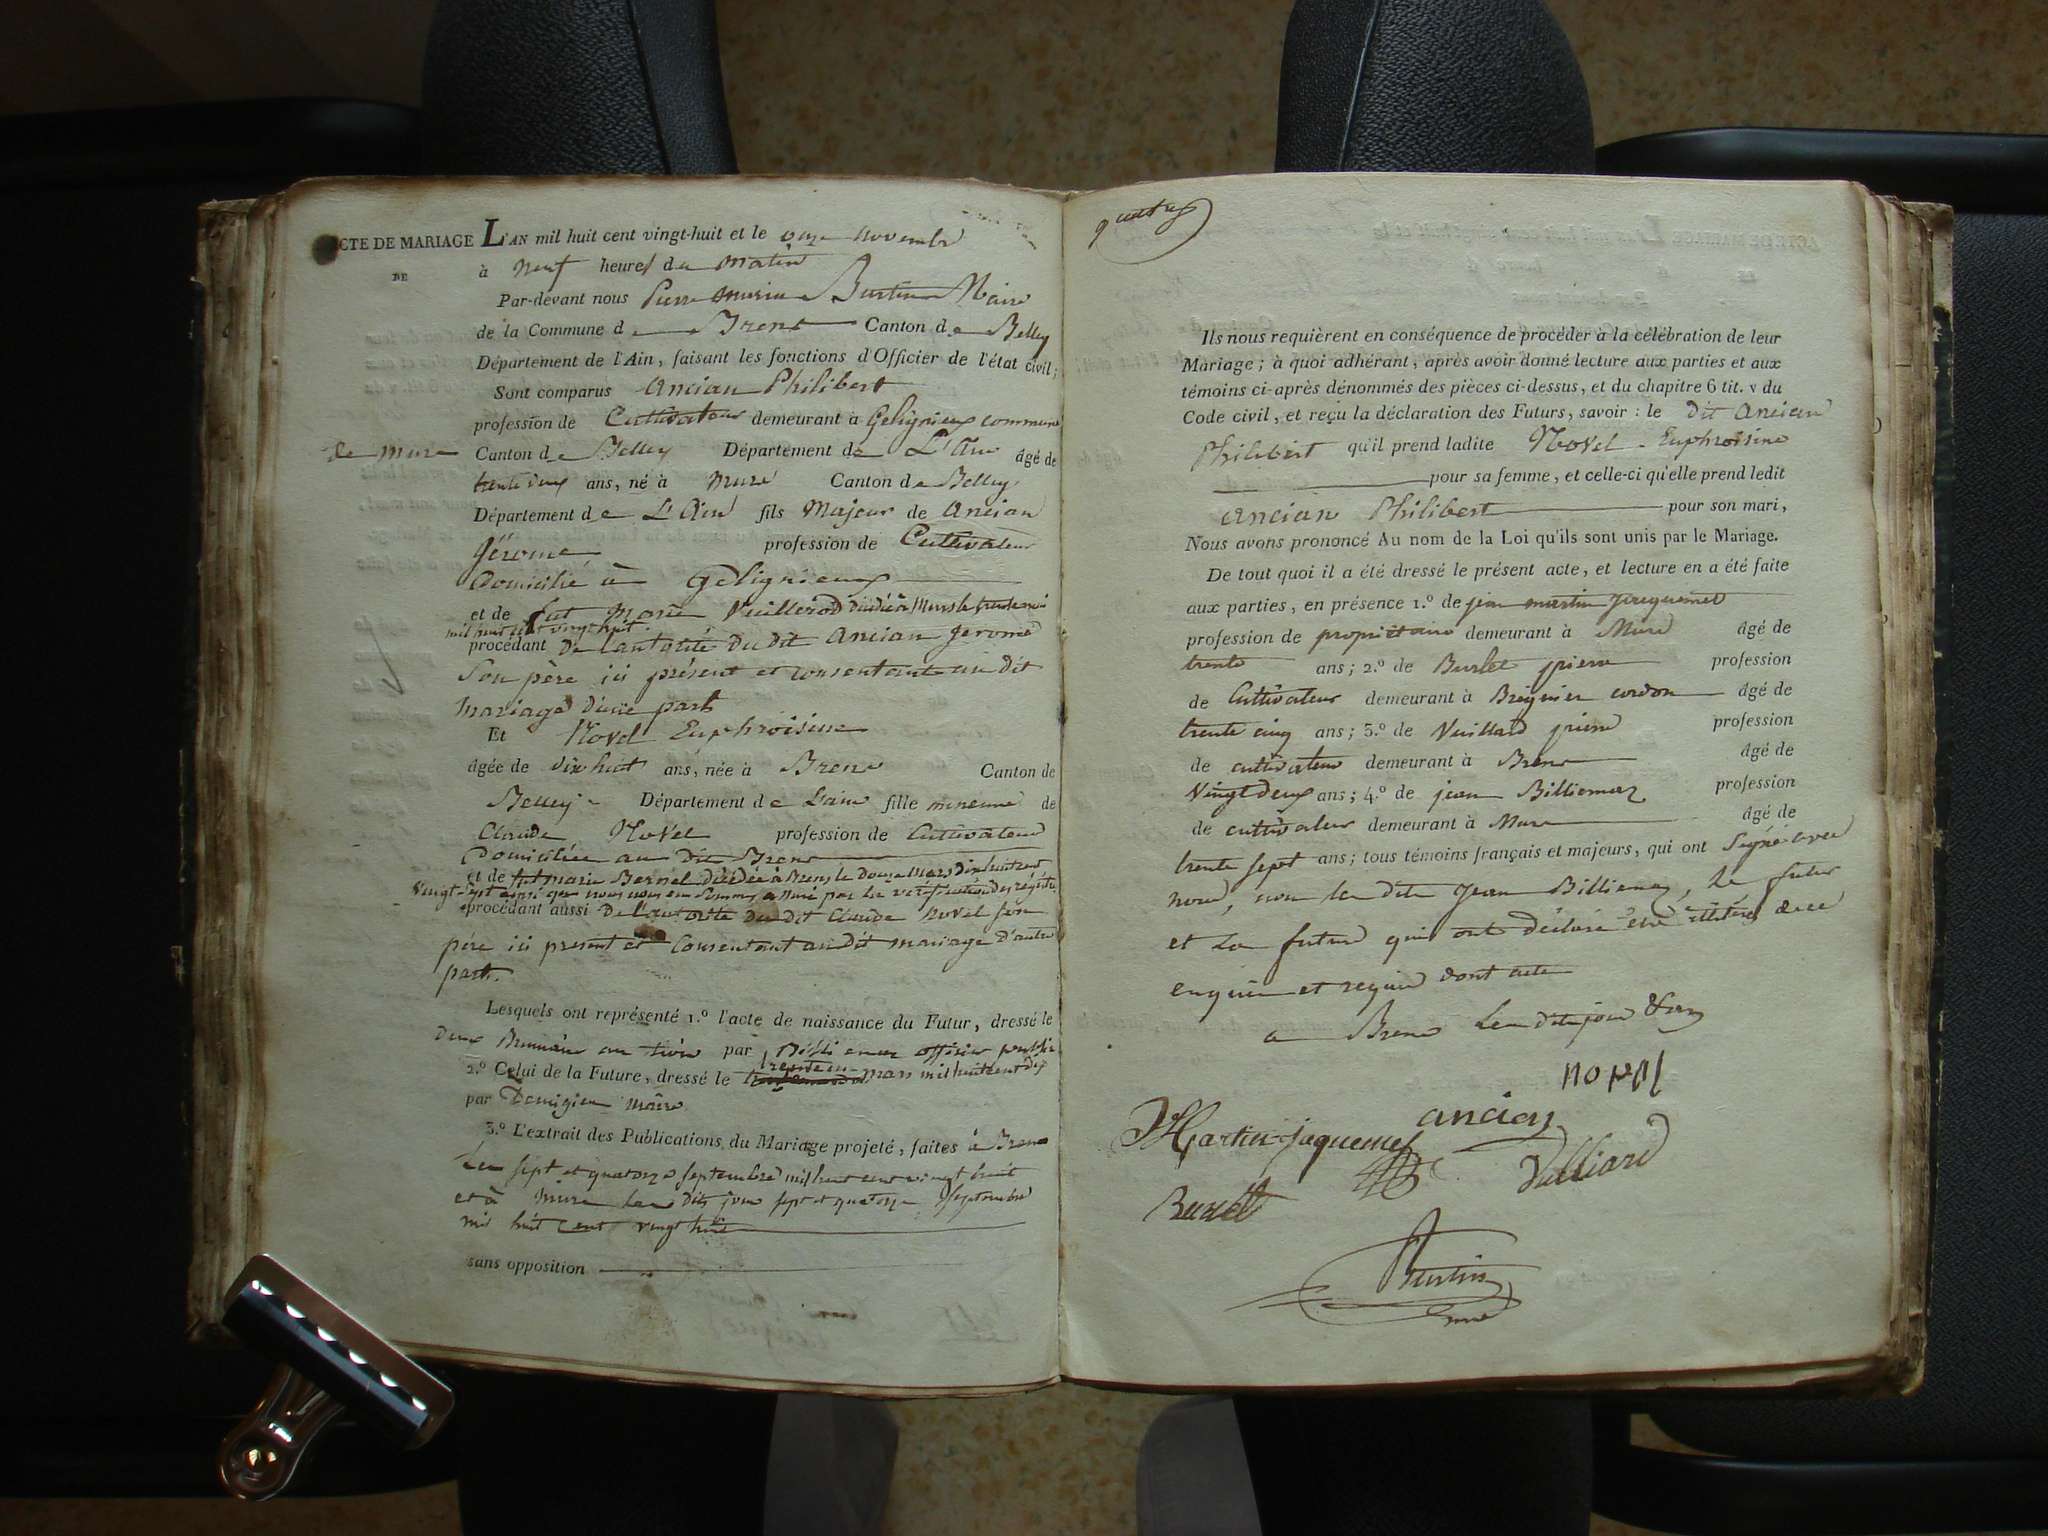 ACTE DE MARIAGE L'AN mil huit cent vingt-huit et le onze novembre
DE à neuf heures du matin
Par-devant nous Pierre marin Burtin Maire
de la Commune de Brens Canton de Belley
Département de l'Ain, faisant les fonctions d'Officier de l'état civil;
Sont comparus Ancian Philibert
profession de Cultivateur demeurant à Gelignieux commune
de Mure Canton de Belley Département de L'Ain âgé de
trente deux ans, né à Mure Canton de Belley
Département de L'Ain fils Majeur de Ancian
Jérome profession de Cultivateur
Domicilié à Gelignieux
et de fut Marie Vuillerod décédée à Murs le trente mai
mil huit cent vingt huit
procédant de l'autorité du dit Ancian Jerome
Son père ici présent et consentant au dit
mariage d'une part
Et Novel Euphroisine
âgée de dix huit ans, née à Brens Canton de
Belley Département de L'ain fille mineure de
Claude Novel profession de Cultivateur
Domiciliée au dit Brens
et de fut marie Bernel décédée à Brens le Douze Mars dix huit cent
Vingt Sept ainsi que nous nous en Sommes assuré par la vérification des régistres
procédant aussi De l'autorité du dit Claude Novel son
père ici present et Consentant au dit mariage d'autre
part.
Lesquels ont représenté 1.º l'acte de naissance du Futur, dressé le
Deux Brumaire an trois par Billiemaz officier public
2.º Celui de la Future, dressé le trente un mars mil huit cent dix
par Maire
3.º L'extrait des Publications du Mariage projeté, faites à Brens
Les sept et quatorze septembre mil huit cent vingt huit
et à Mure les dits jour sept et quatorze septembre
mil huit Cent vingt huit
sans opposition
Ils nous requièrent en conséquence de procéder à la célébration de leur
Mariage; à quoi adhérant, après avoir donné lecture aux parties et aux
témoins ci-après dénommés des pièces ci-dessus, et du chapitre 6 tit. v du
Code civil, et reçu la déclaration des Futurs, savoir : le dit Ancian
Philibert qu'il prend ladite Novel Euphroisine
pour sa femme, et celle-ci qu'elle prend ledit
Ancian Philibert pour son mari,
Nous avons prononcé Au nom de la Loi qu'ils sont unis par le Mariage.
De tout quoi il a été dressé le présent acte, et lecture en a été faite
aux parties, en présence 1.º de jean martin Jacquemet
profession de propriétaire demeurant à Mure âgé de
trente ans; 2.º de Burlet pierre profession
de Cultivateur demeurant à Brégnier cordon âgé de
trente cinq ans; 3.º de Vuillard pierre profession
de cultivateur demeurant à Brens âgé de
Vingt Deux ans; 4.º de jean Billiemaz profession
de cultivateur demeurant à Mure âgé de
trente sept ans; tous témoins français et majeurs, qui ont Signé avec
nous, non le dit Jean Billiemaz, le futur
et La future qui ont déclaré être illitérés de ce
enquis et requis dont acte
a Brens Les dits jour & an
novel
ancian
Martin jaquemet
Vulliard
Burlet
Burtin